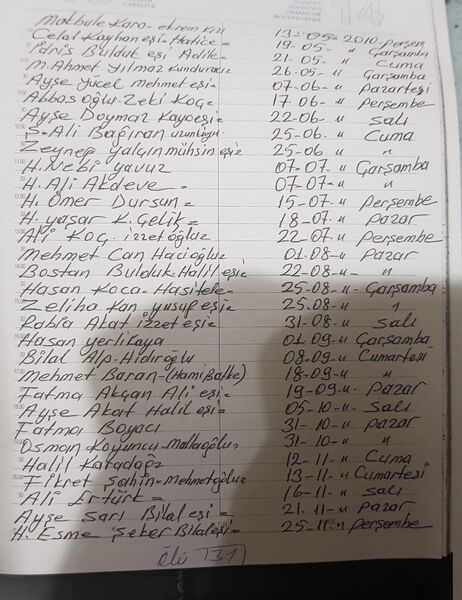 Makbule Kara-ekrem kızı 13-05-2010 Perşem
Celal Kayhan eşi-Hatice= 19-05- " Çarşamba
İdris Bulduk eşi Adile- 21-05- " Cuma
M. Ahmet Yılmaz kunduracı 26-05- " Çarşamba
Ayşe Yücel mehmet eşi= 07-06- " Pazartesi
Abbasoğlu-Zeki Koç= 17-06- " Perşembe
Ayşe Doymaz Kayaeşi- 22-06- " Salı
S. Ali Bağıran 25-06- " Cuma
Zeynep yalçın mühsin eşi= 25-06 " "
H. Nebi yavuz 07-07- " Çarşamba
H. Ali Akdeve= 07-07- " "
H. Ömer Dursun= 15-07- " Perşembe
H. yaşar K. Çelik= 18-07- " Pazar
Ali Koç-izzetoğluz 22-07- " Perşembe
Mehmet Can Hacıoğluz 01-08- " Pazar
Bostan Bulduk-Halil eşi= 22-08- " - "
Hasan Koca-Hasitele= 25-08- " - Çarşamba
Zeliha Kan yusuf eşi= 25-08- " "
Rabia Akat izzet eşi= 31-08- " Salı
Hasan yerlikaya 01-09- " Çarşamba
Bilal Alp-Hıdıroğlu 08-09- " Cumartesi
Mehmet Baran-(Hamibalke) 18-09- " "
Fatma Akçan Ali eşi= 19-09- " Pazar
Ayşe Akat Halil eşi= 05-10- " - Salı
Fatma Boyacı 31-10- " Pazar
Osman Koyuncu-Mallaoğluz 31-10- " "
Halil Karadağz 12-11- " Cuma
Fikret Şahin-Mehmetoğluz 13-11- " Cumartesi
Ali Ertürk= 16-11- " Salı
Ayşe Sarı Bilal eşi= 21-11- " Pazar
H. Esme Şeker Bilal eşi- 25-11- " Perşembe
ölü 131